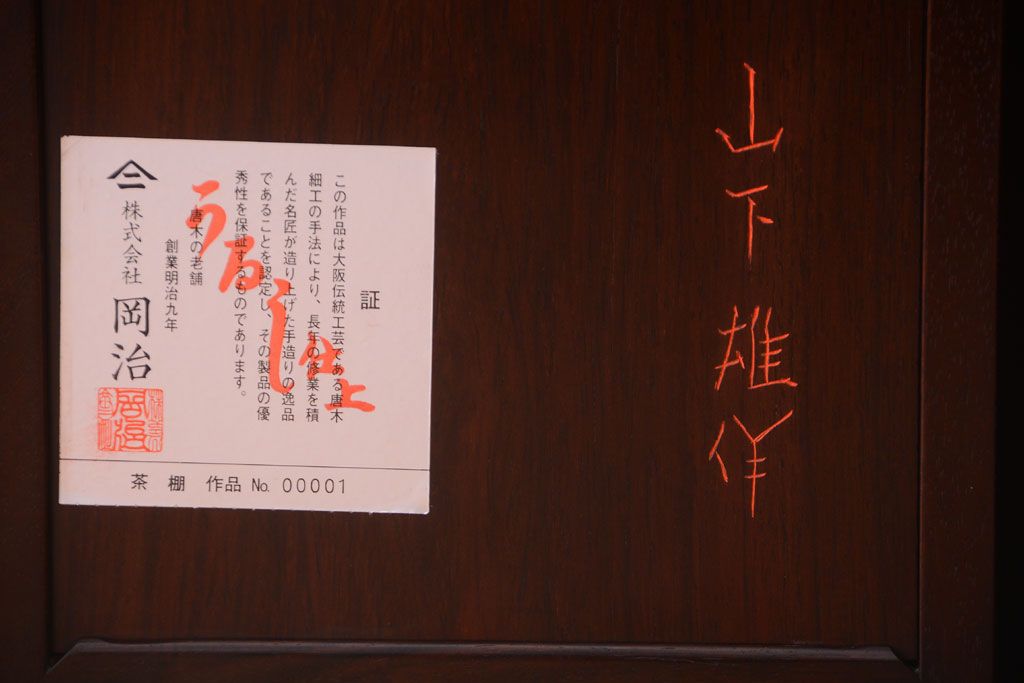 証
この作品は大阪伝統工芸である唐木
細工の手法により、長年の修業を積
んだ名匠が造り上げた手造りの逸品
であることを認定し、その製品の優
秀性を保証するものであります。
うるし仕上
唐木の老舗
創業明治九年
株式会社 岡治
茶棚 作品 No. 00001
山下雄作